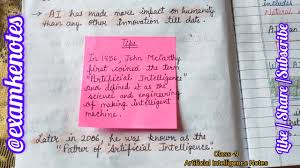 AI has made more impact on humanity
than any other Innovation till date.
Includes
Notes
Tips
In 1956, John McCarthy
first coined the term
"Artificial Intelligence"
and defined it as the
science and engineering
of making intelligent
machine.
Later in 2006, he was known as the
"Father of Artificial Intelligence"
Class -9
Artificial Intelligence Notes
@examkenotes
Like | Share | Subscribe